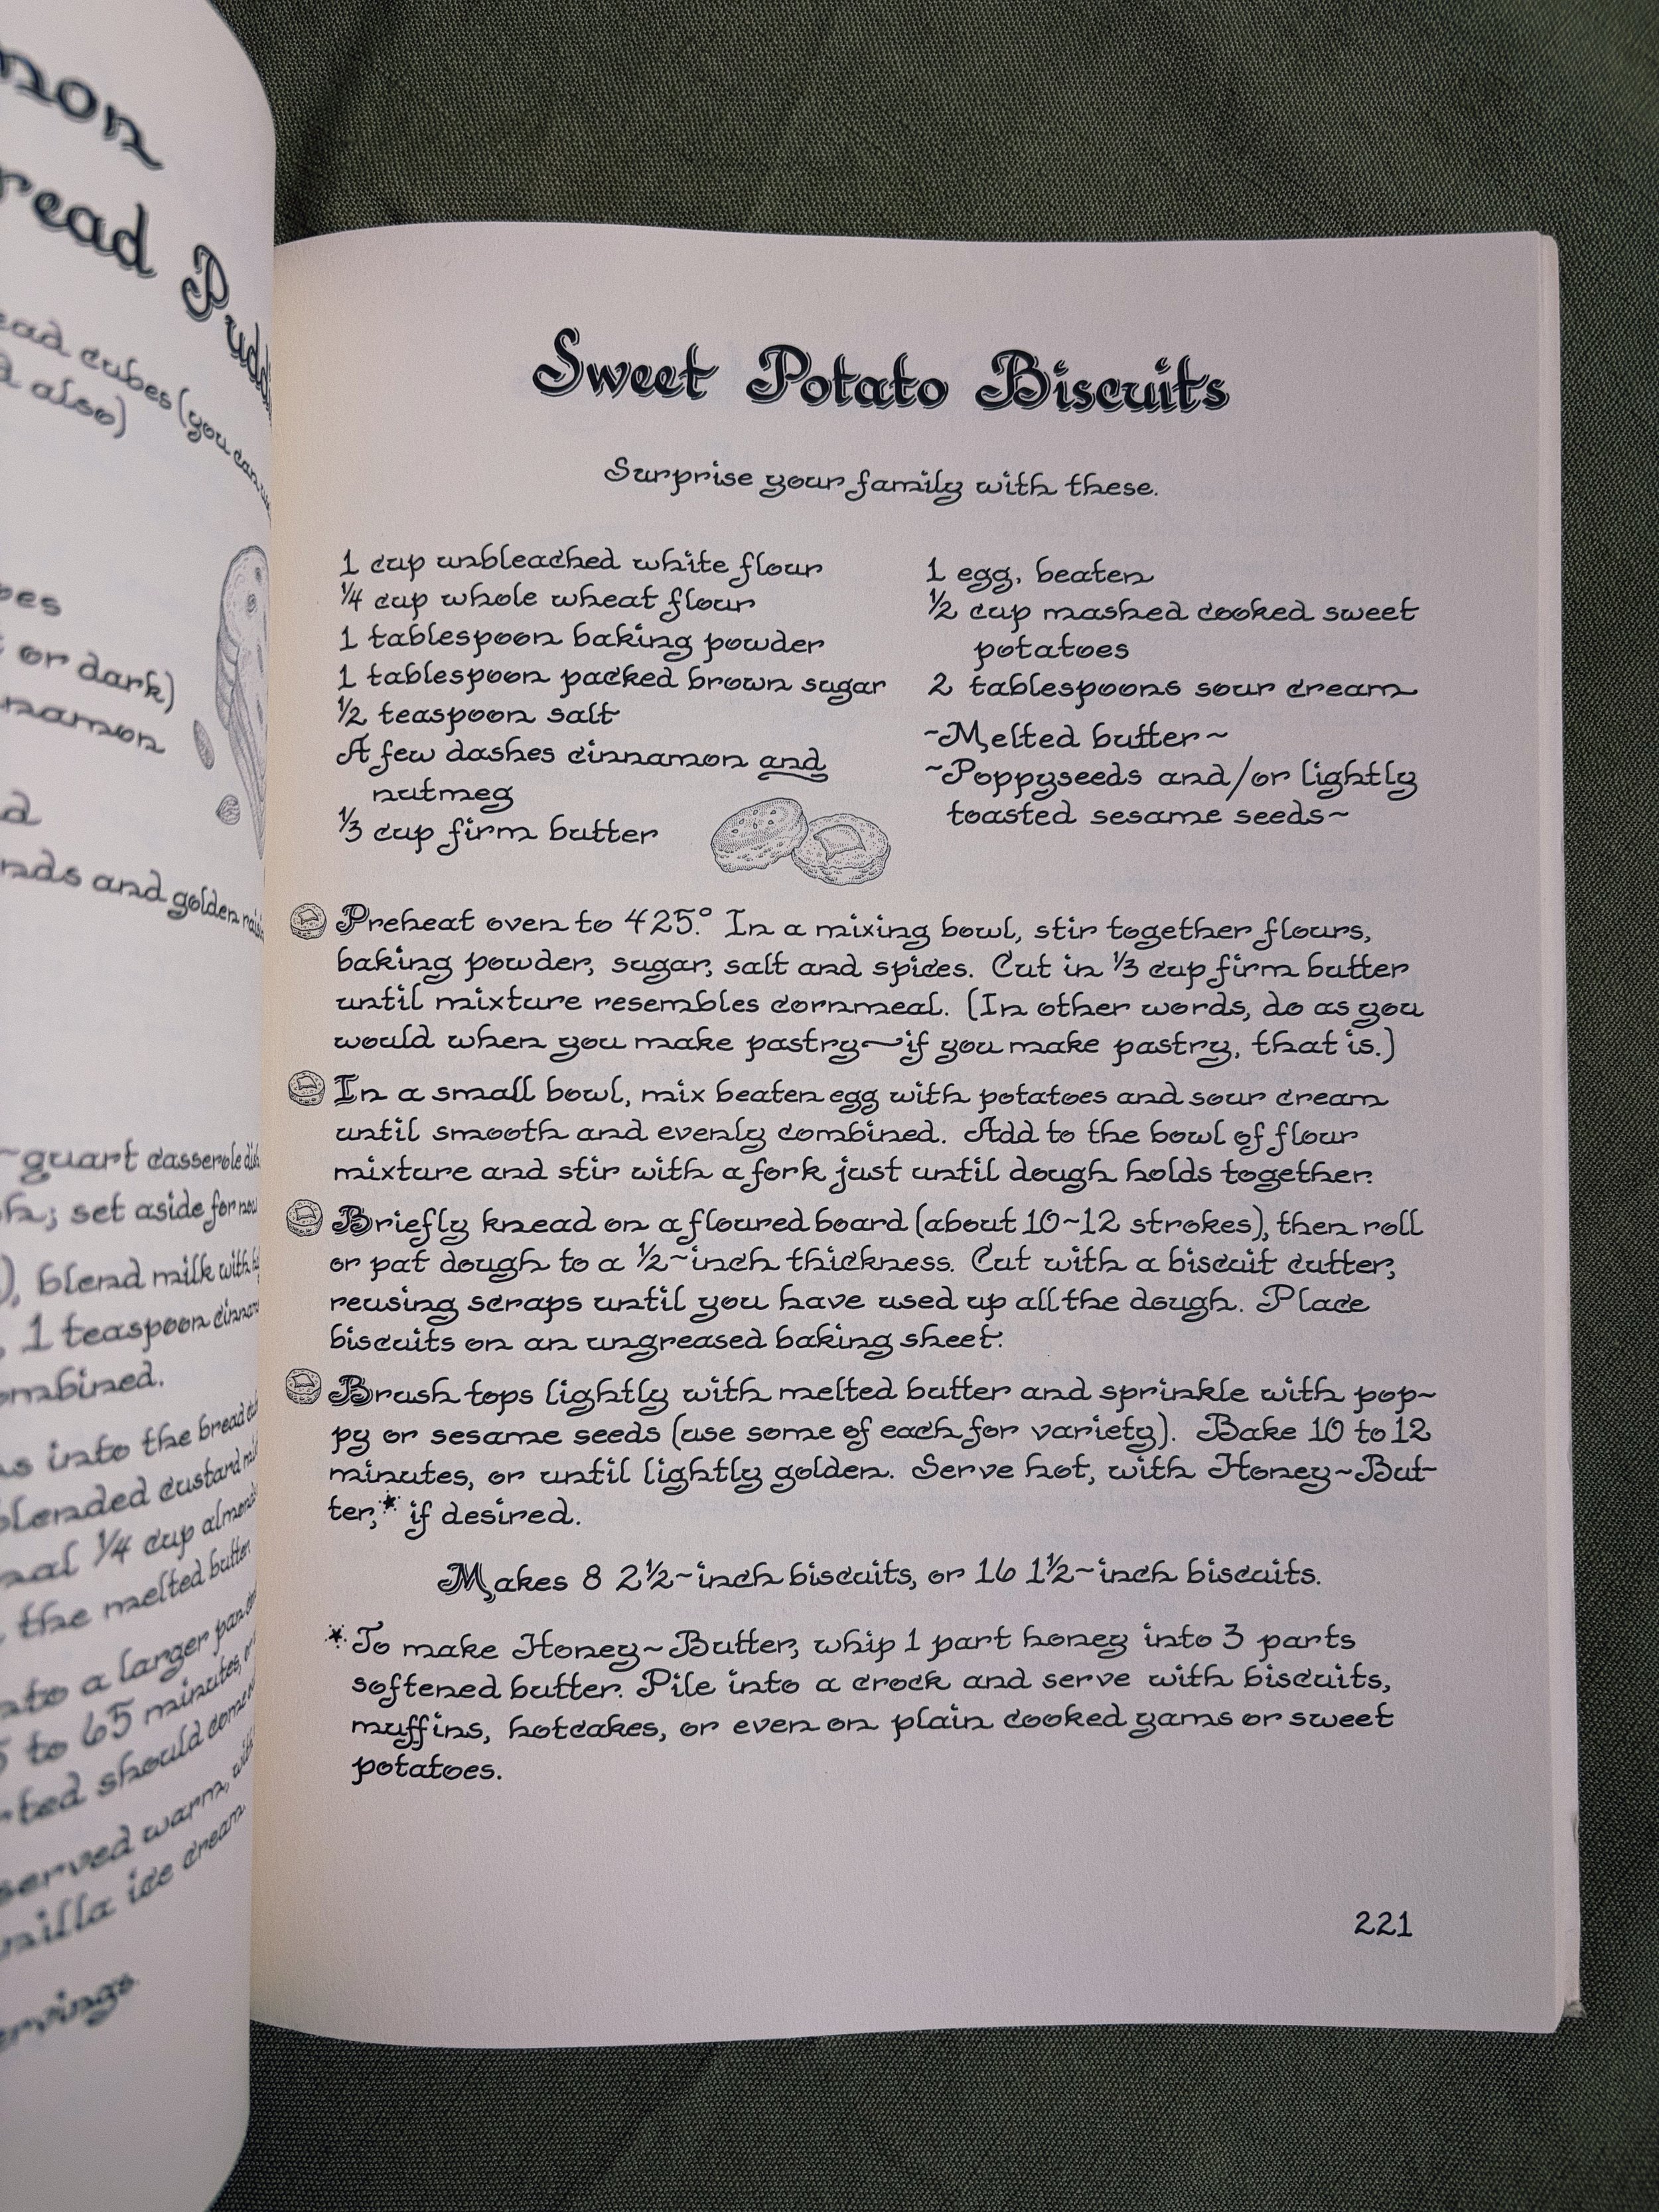 read
ead cubes (you can
also)
or dark)
namon
and golden
quart casserole
; set aside for now
blend milk with
1 teaspoon
into the bread
blended custard
1/4 cup
the melted butter
to a larger pan
to 65 minutes,
should
served warm,
ice cream
Sweet Potato Biscuits
Surprise your family with these.
1 cup unbleached white flour
1/4 cup whole wheat flour
1 tablespoon baking powder
1 tablespoon packed brown sugar
1/2 teaspoon salt
A few dashes cinnamon and
nutmeg
1/3 cup firm butter
1 egg, beaten
1/2 cup mashed cooked sweet
potatoes
2 tablespoons sour cream
~Melted butter~
~Poppyseeds and/or lightly
toasted sesame seeds~
Preheat oven to 425.° In a mixing bowl, stir together flours,
baking powder, sugar, salt and spices. Cut in 1/3 cup firm butter
until mixture resembles cornmeal. (In other words, do as you
would when you make pastry~if you make pastry, that is.)
In a small bowl, mix beaten egg with potatoes and sour cream
until smooth and evenly combined. Add to the bowl of flour
mixture and stir with a fork just until dough holds together.
Briefly knead on a floured board (about 10~12 strokes), then roll
or pat dough to a 1/2~inch thickness. Cut with a biscuit cutter,
reusing scraps until you have used up all the dough. Place
biscuits on an ungreased baking sheet.
Brush tops lightly with melted butter and sprinkle with pop~
py or sesame seeds (use some of each for variety). Bake 10 to 12
minutes, or until lightly golden. Serve hot, with Honey~But~
ter,* if desired.
Makes 8 2 1/2~inch biscuits, or 16 1 1/2~inch biscuits.
*To make Honey~Butter, whip 1 part honey into 3 parts
softened butter. Pile into a crock and serve with biscuits,
muffins, hotcakes, or even on plain cooked yams or sweet
potatoes.
221